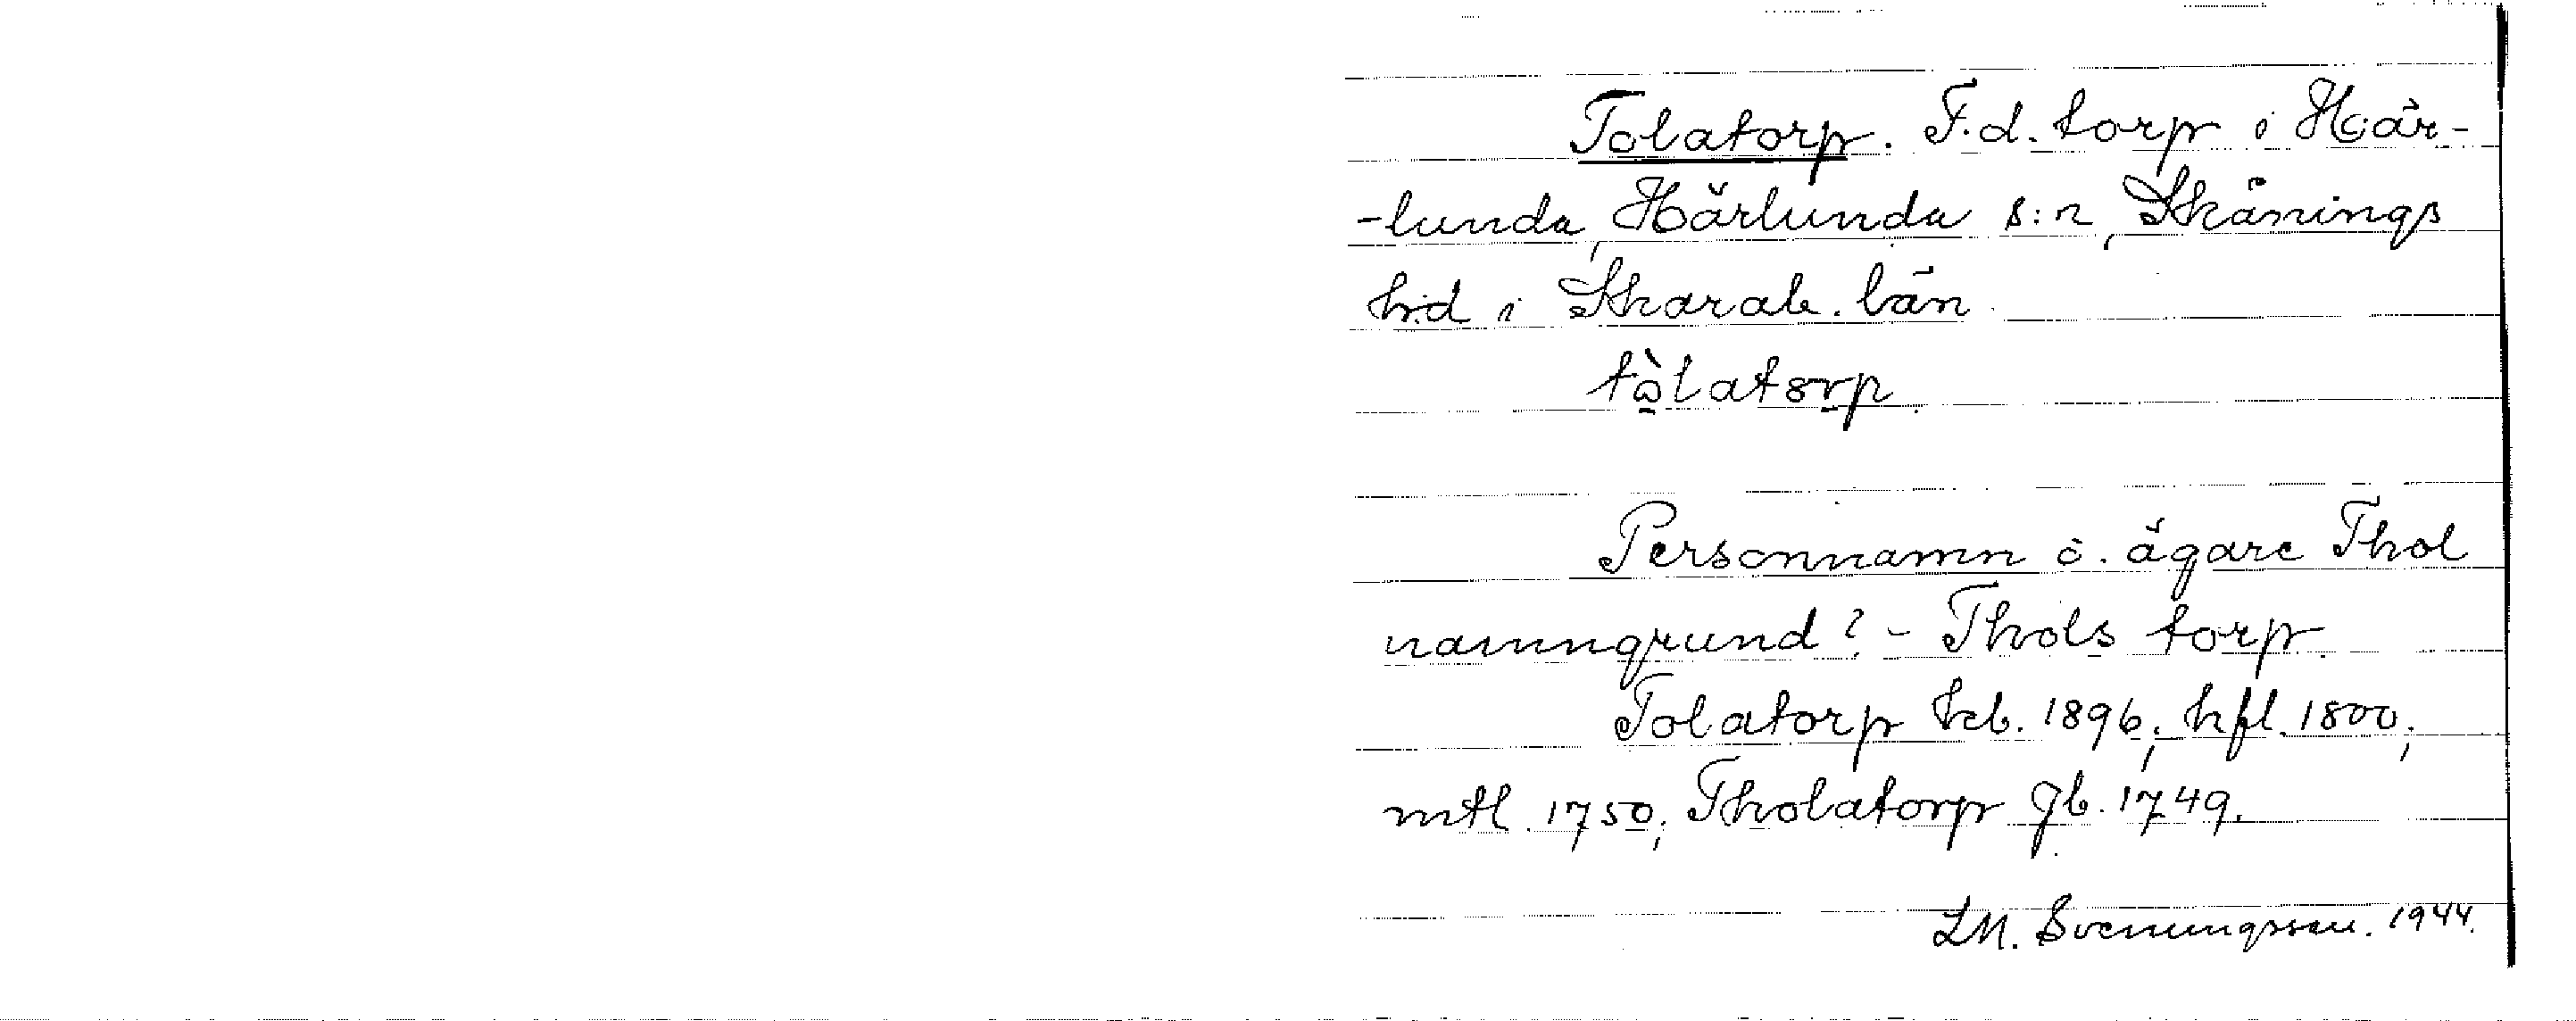 Tolatorp. F.d. torp i Här-
-lunda, Härlunda s:n, Skånings
hd i Skarab. län
tòlatorp.
Personnamn ö. ägare Thol
namngrund? - Thols torp.
Tolatorp kb. 1896; hfl. 1800;
mtl. 1750; Tholatorp Jb. 1749.
LM. Svenungsson. 1944.